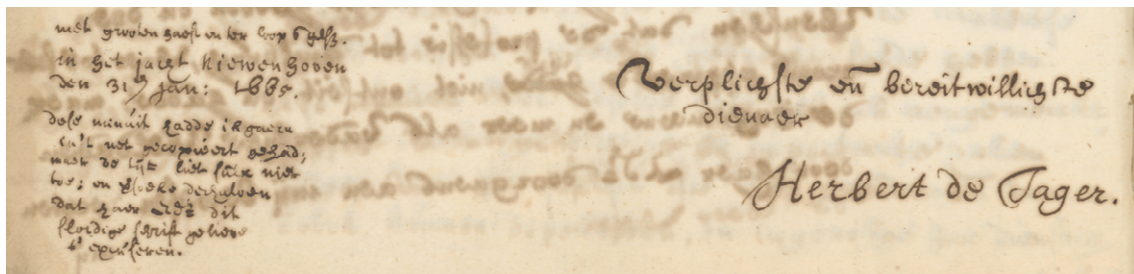 met grooten haest en ter loop gesz.
in het jacht Niewenhoven
den 31 Jan: 1665.
dese minuit hadde ik gaern
in't net gecopieert gehad;
maer de tijt liet sulx niet
toe; en versoeke derhalven
dat haer Edt dit
slordige schrift gelieve
t' excuseren.
Verplichste en bereitwillichste
dienaer
Herbert de Jager.